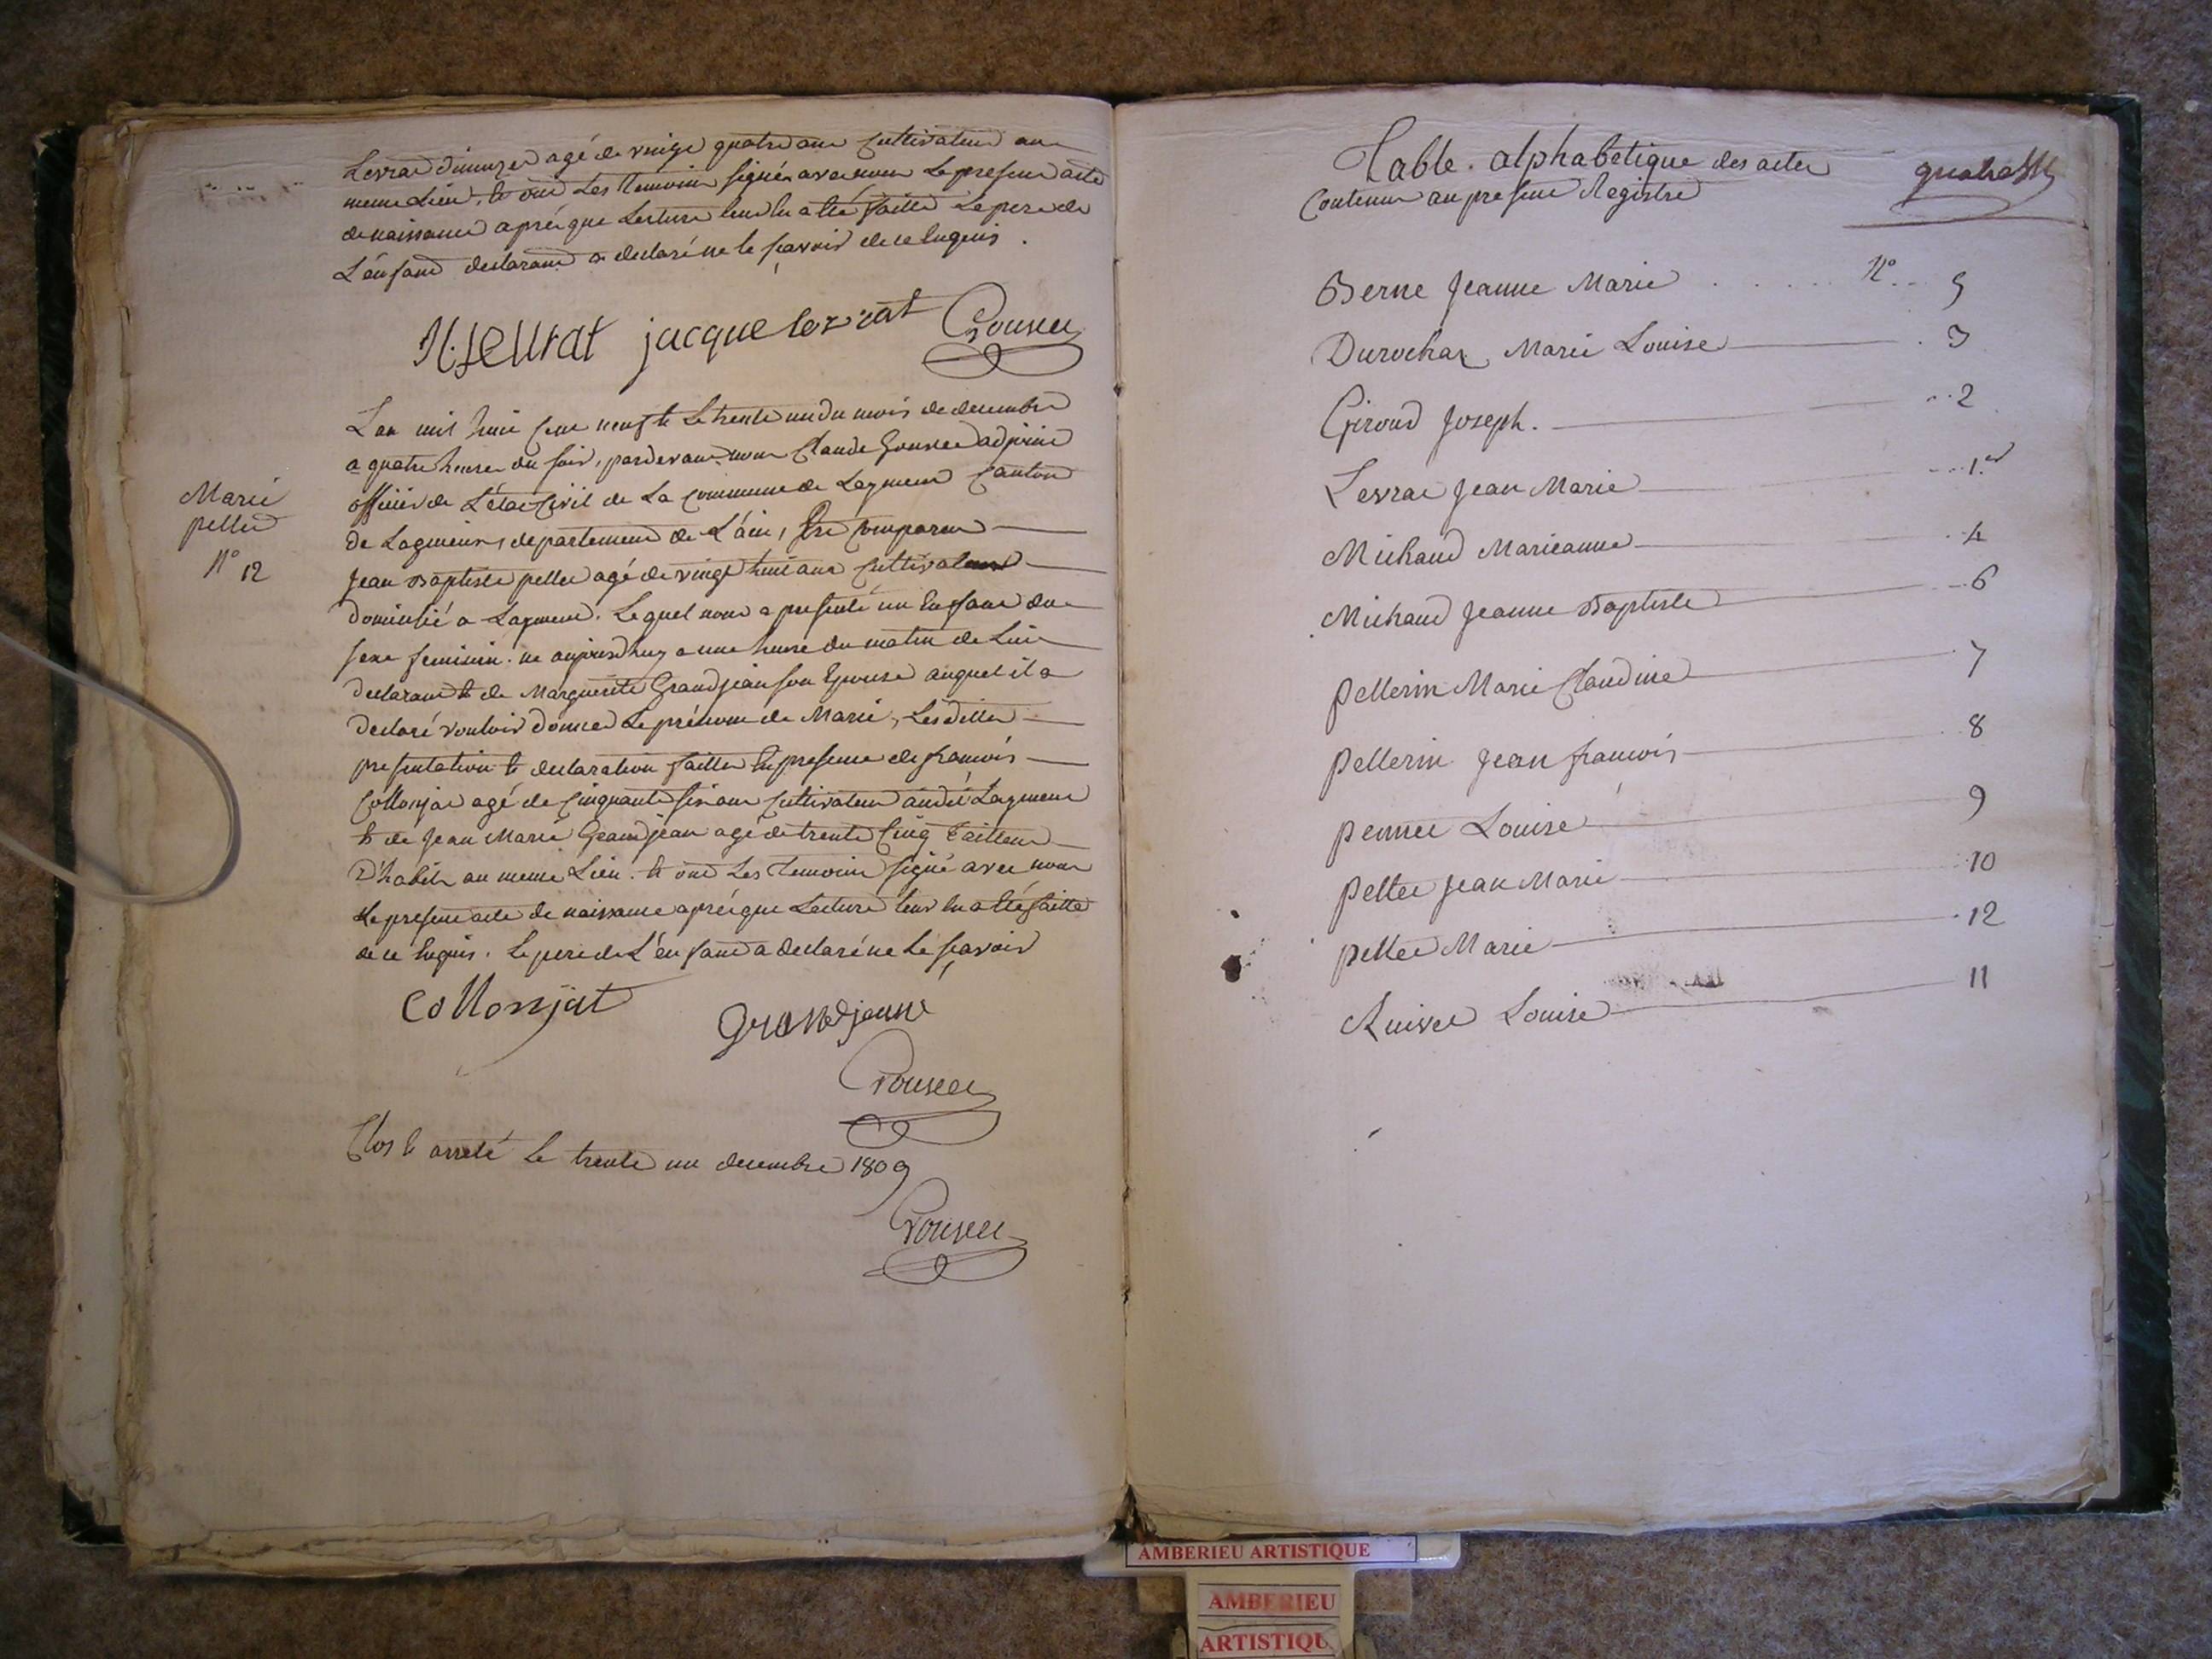 Levrat d'innuze agé de vingt quatre ans Cultivateur au
meme Lieu, et ont Les temoins signés avec nous Le present acte
de naissance aprés que Lecture leur En a Eté faitte Le pere de
L'énfant declarant a declaré ne le sçavoir de ce Enquis.
jacque levrat
L'an mil huit Cent neuf et Le trente un du mois de decembre
a quatre heures du soir, pardevant nous Claude adjoint
officier de L'état Civil de La commune de Leyment Canton
de Lagnieux, departement de L'ain, Est Comparu
Jean Baptiste pellet agé de vingt huit ans Cultivateur
domicilié a Leyment. Lequel nous a presenté un Enfant du
sexe feminin. né aujourd'huy a une heure du matin de Lui
declarant et de Marguerite Grandjean son Epouse auquel il a
declaré vouloir donner Le prénom de Marie, Lesdittes
presentation et declaration faittes En presence de francois
Collonjat agé de Cinquante six ans Cultivateur audit Leyment
et de Jean Marie Grandjean agé de trente Cinq tailleur
D'habits au meme Lieu. et ont Les temoins signé avec nous
Le present acte de naissance aprés que Lecture leur En a Eté faitte
de ce Enquis. Le pere de L'énfant a declaré ne Le sçavoir
Marie
pellet
N° 12
Collonjat
Grandjean
Clos et arreté Le trente un decembre 1809
Table alphabetique des actes
Contenus au present Registre
Berne Jeanne Marie N° 5
Durochat Marie Louise 3
Giroud Joseph. 2
Levrat Jean Marie 1.er
Michaud Marieanne 4
Michaud Jeanne Baptiste 6
pellerin Marie Claudine 7
pellerin Jean francois 8
pennet Louise 9
pellet Jean Marie 10
pellet Marie 12
Ruivet Louise 11
AMBERIEU ARTISTIQUE
AMBERIEU
ARTISTIQU